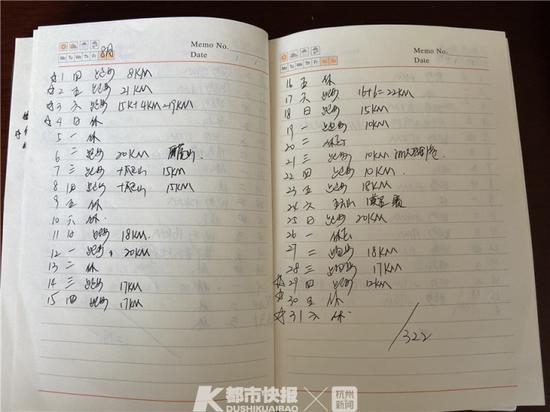 Memo No.
Date
8月
1 四 跑步 8KM
2 五 跑步 21KM
3 六 跑步 15K+4KM=19KM
4 日 休
5 一 休
6 二 跑步 20KM
7 三 跑步 15KM
8 四 跑步 15KM
9 五 休
10 六 休
11 日 跑步 18KM
12 一 跑步 20KM
13 二 休
14 三 跑步 17KM
15 四 跑步 17KM
Memo No.
Date
16 五 休
17 六 跑步 16+6=22KM
18 日 跑步 15KM
19 一 跑步 10KM
20 二 休
21 三 跑步 10KM
22 四 跑步 10KM
23 五 跑步 18KM
24 六
25 日 跑步 20KM
26 一 休
27 二 跑步 18KM
28 三 跑步 17KM
29 四 跑步 12KM
30 五 休
31 六 休
322
都市快报
DUSHIKUAIBAO
杭州
新闻